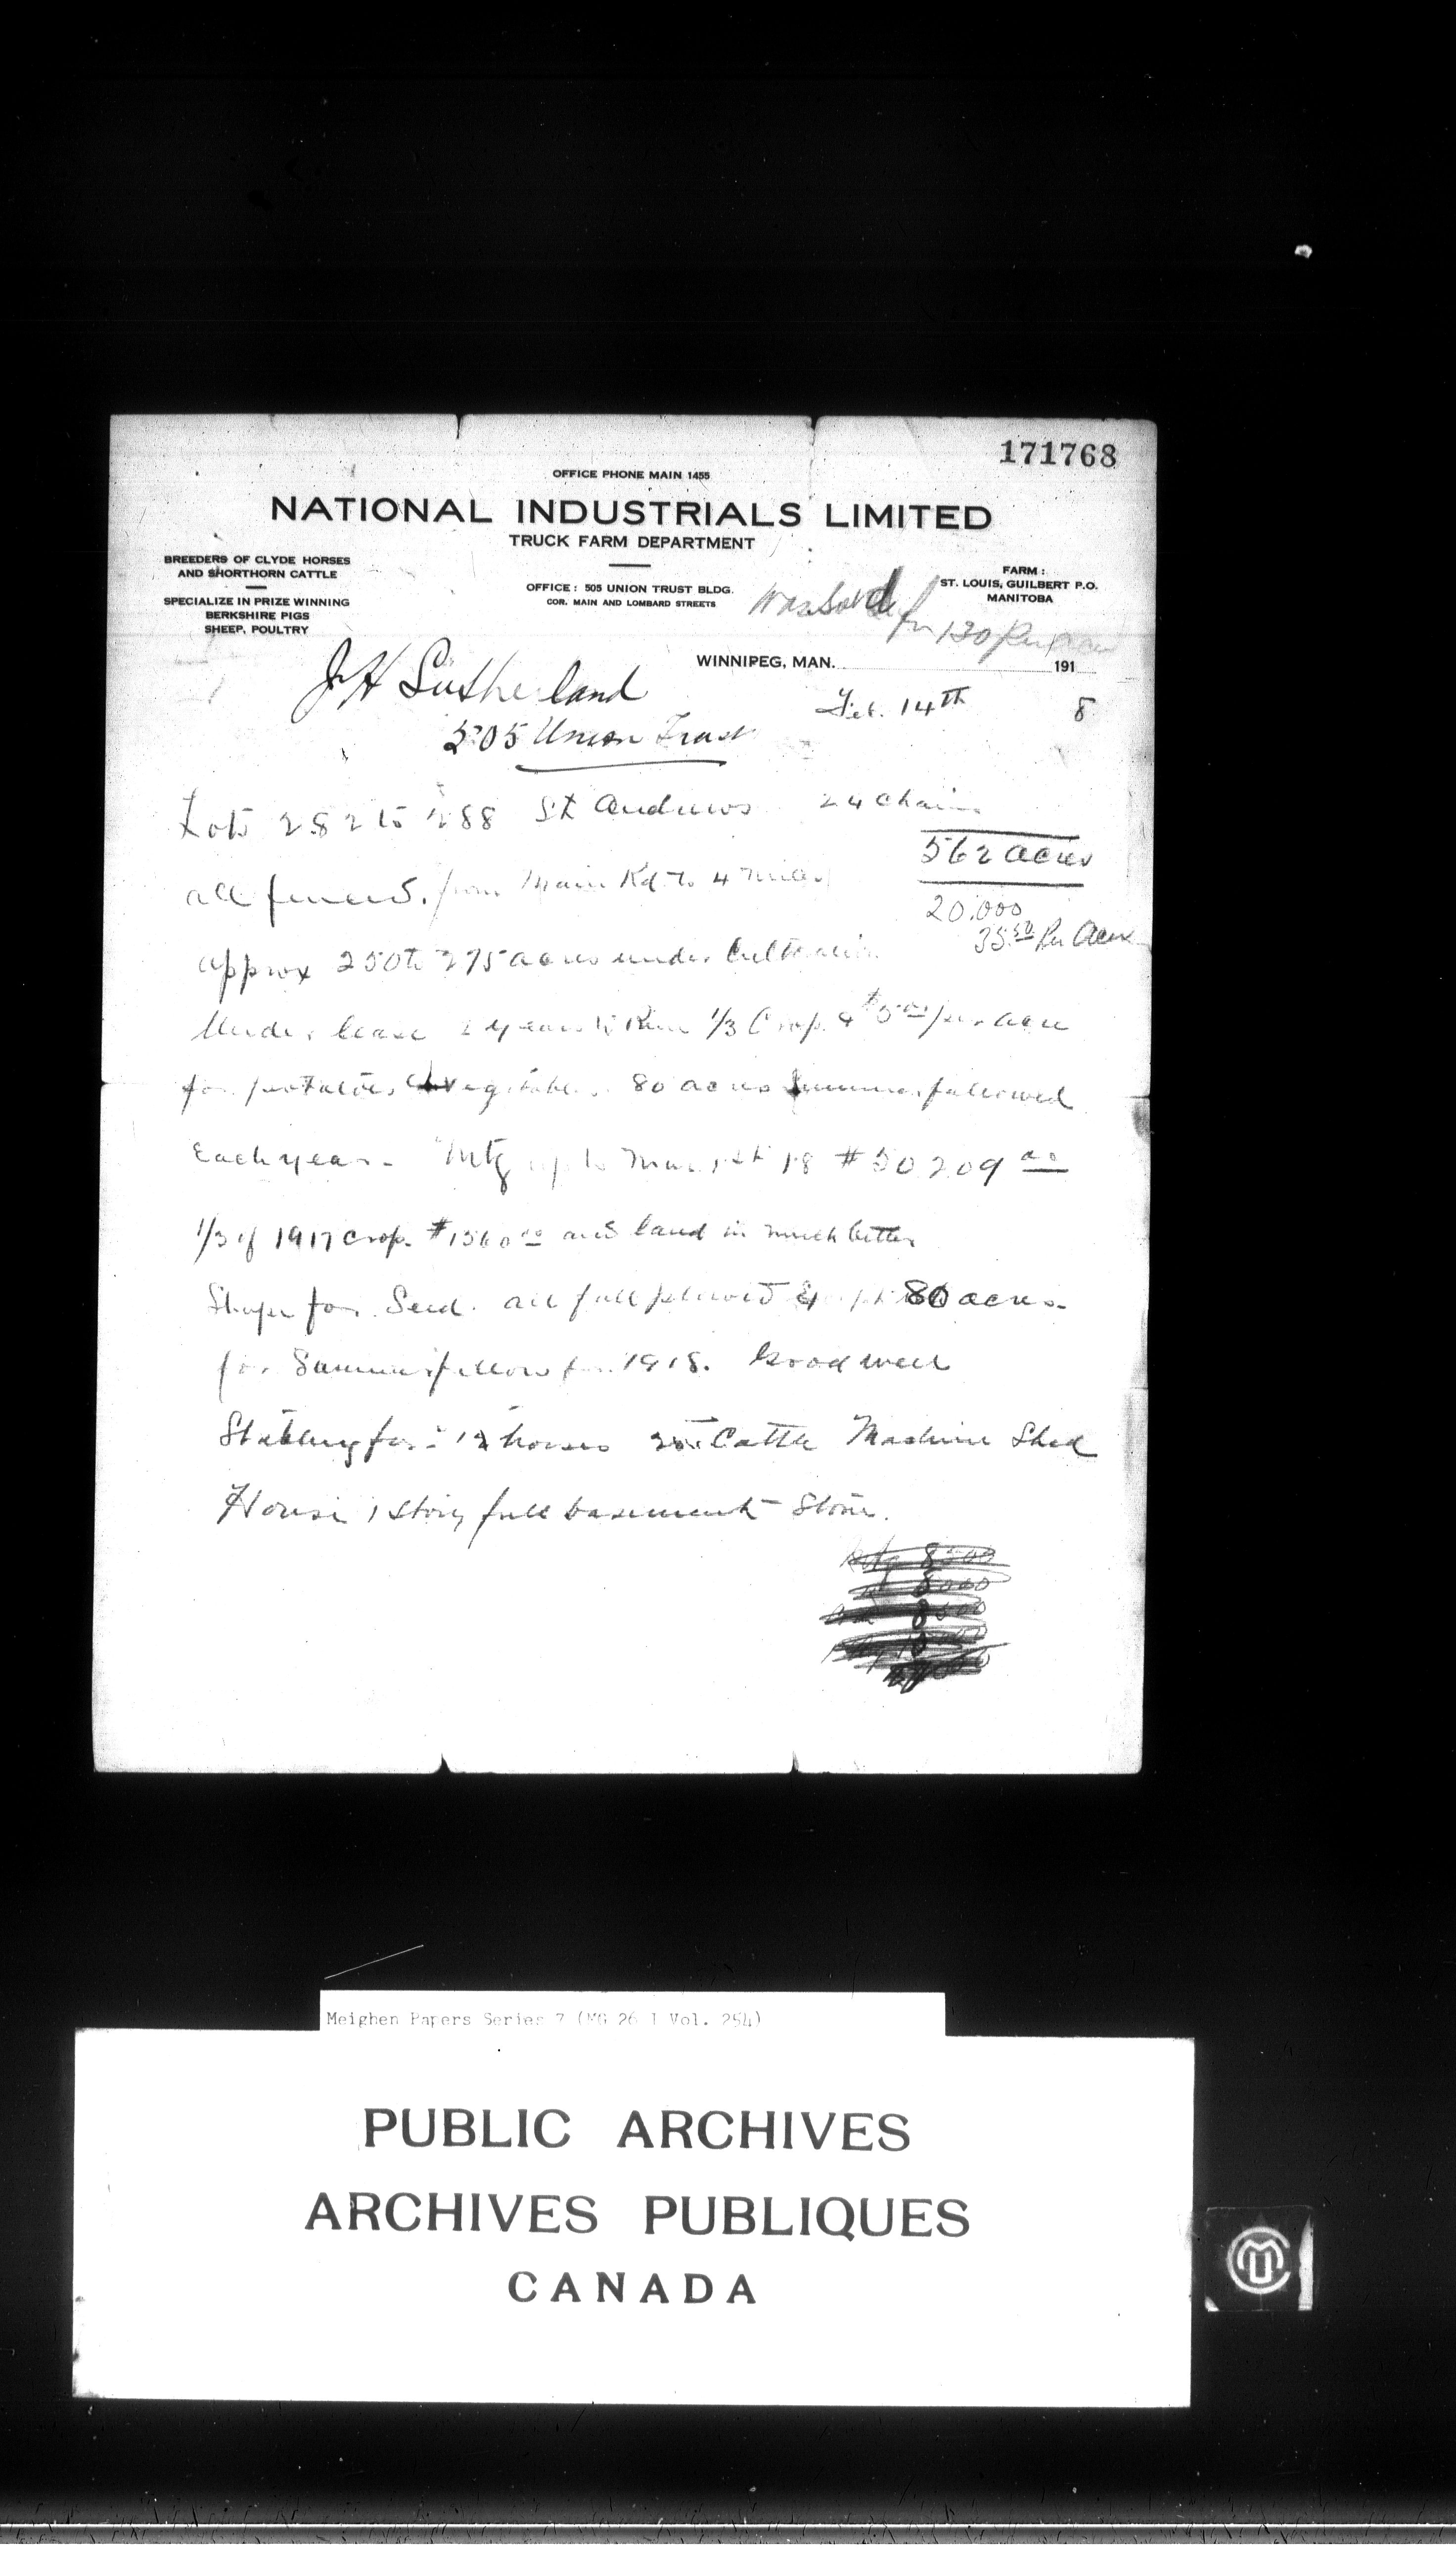 171768
OFFICE PHONE MAIN 1455
NATIONAL INDUSTRIALS LIMITED
TRUCK FARM DEPARTMENT
BREEDERS OF CLYDE HORSES
AND SHORTHORN CATTLE
SPECIALIZE IN PRIZE WINNING
BERKSHIRE PIGS
SHEEP, POULTRY
OFFICE: 505 UNION TRUST BLDG.
COR. MAIN AND LOMBARD STREETS
FARM:
ST. LOUIS, GUILBERT P.O.
MANITOBA
Was Sold for 130 Per acre
WINNIPEG, MAN. 191
J H Sutherland
Feb. 14th 8
505 Union Trust
Lots 282 to 288 St Andrews 24 Chains
562 acres
all fenced. from Main Rd to 4 Miles
20.000
35.50 Per Acre
approx 250 to 275 acres under Cultivation
Under lease 2 years to Run 1/3 Crop & $5.00 per acre
for potatoes vegitables. 80 acres Summer followed
Each year - Mtg up to Mar 1st 18 $50209.00
1/3 of 1917 Crop. $1560.00 and land in much better
Shape for Seed. all fall plowed Except 80 acres.
for Summerfallow for 1918. Good well
Stabling for 12 horses Cattle Machine Shed
House 1 Story full basement Stone.
8500
8000
8500
Meighen Papers Series 7 (MG 26 I Vol. 254)
PUBLIC ARCHIVES
ARCHIVES PUBLIQUES
CANADA